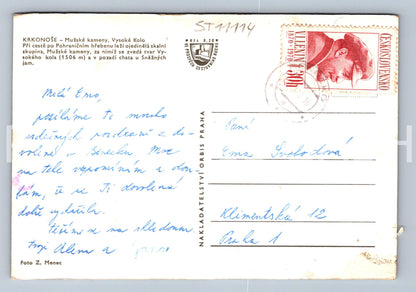 KRKONOŠE – Mužské kameny, Vysoké Kolo
Při cestě po Pohraničním hřebenu leží ojedinělá skalní
skupina, Mužské kameny, za nimiž se zvedá tvar Vy-
sokého kola (1506 m) a v pozadí chata u Sněžných
jam.
ST11114
ČESKOSLOVENSKO
V.I.LENIN
1870-1970
30h
Milá Emo,
posíláme Ti mnoho
srdečných pozdravů z do-
volené
Moc
na tebe vzpomínám a dou-
fám, že se Ti dovolená
dobře vydařila.
Těšíme se na shledanou
tvoji Alena a
Foto Z. Menec
NAKLADATELSTVÍ ORBIS PRAHA
Paní
Ema Svobodová
Klimentská 12
Praha 1